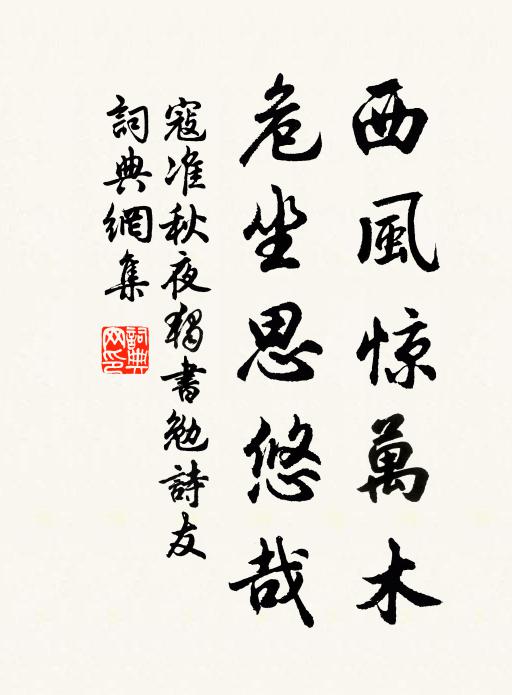 西風惊萬木
危坐思悠哉
寇准秋夜獨書勉詩友
詞典網集
詞典网印